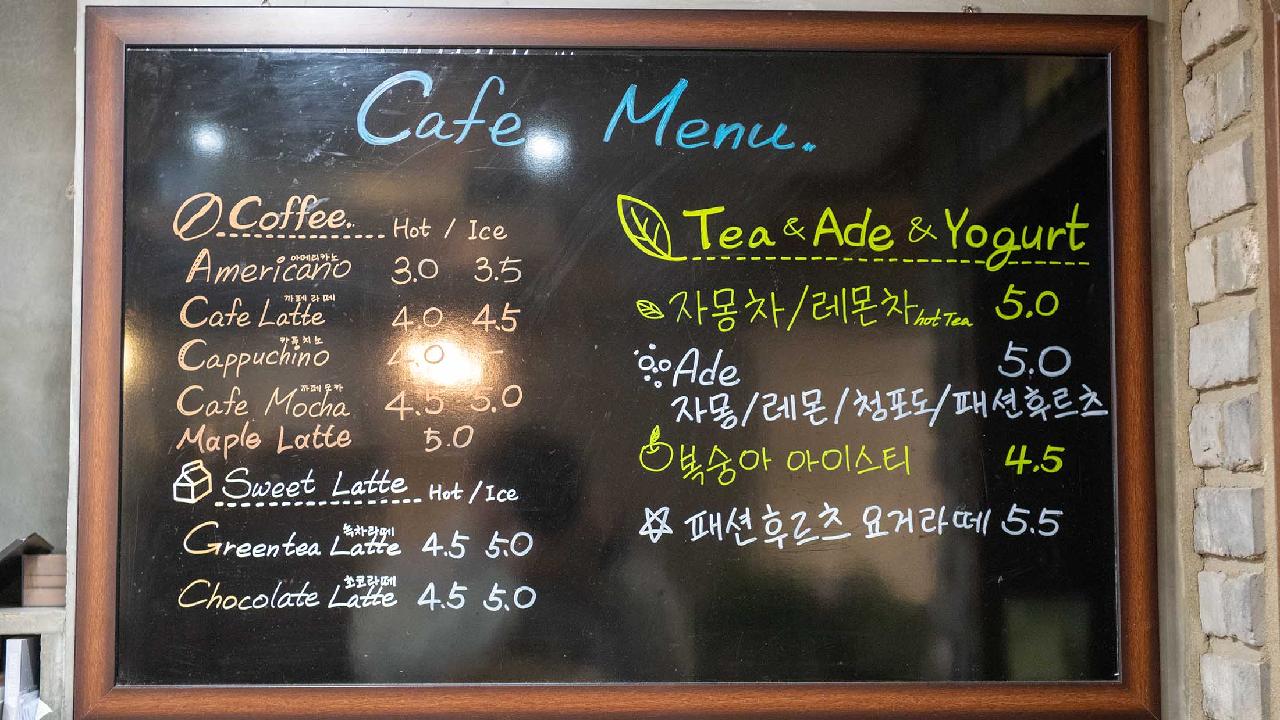 Cafe Menu.
Coffee. Hot / Ice
아메리카노
Americano 3.0 3.5
까페라떼
Cafe Latte 4.0 4.5
카푸치노
Cappuchino 4.0 -
까페모카
Cafe Mocha 4.5 5.0
Maple Latte 5.0
Sweet Latte Hot / Ice
녹차라떼
Greentea Latte 4.5 5.0
초코라떼
Chocolate Latte 4.5 5.0
Tea & Ade & Yogurt
자몽차/레몬차 hot Tea 5.0
Ade 5.0
자몽/레몬/청포도/패션후르츠
복숭아 아이스티 4.5
패션후르츠 요거라떼 5.5